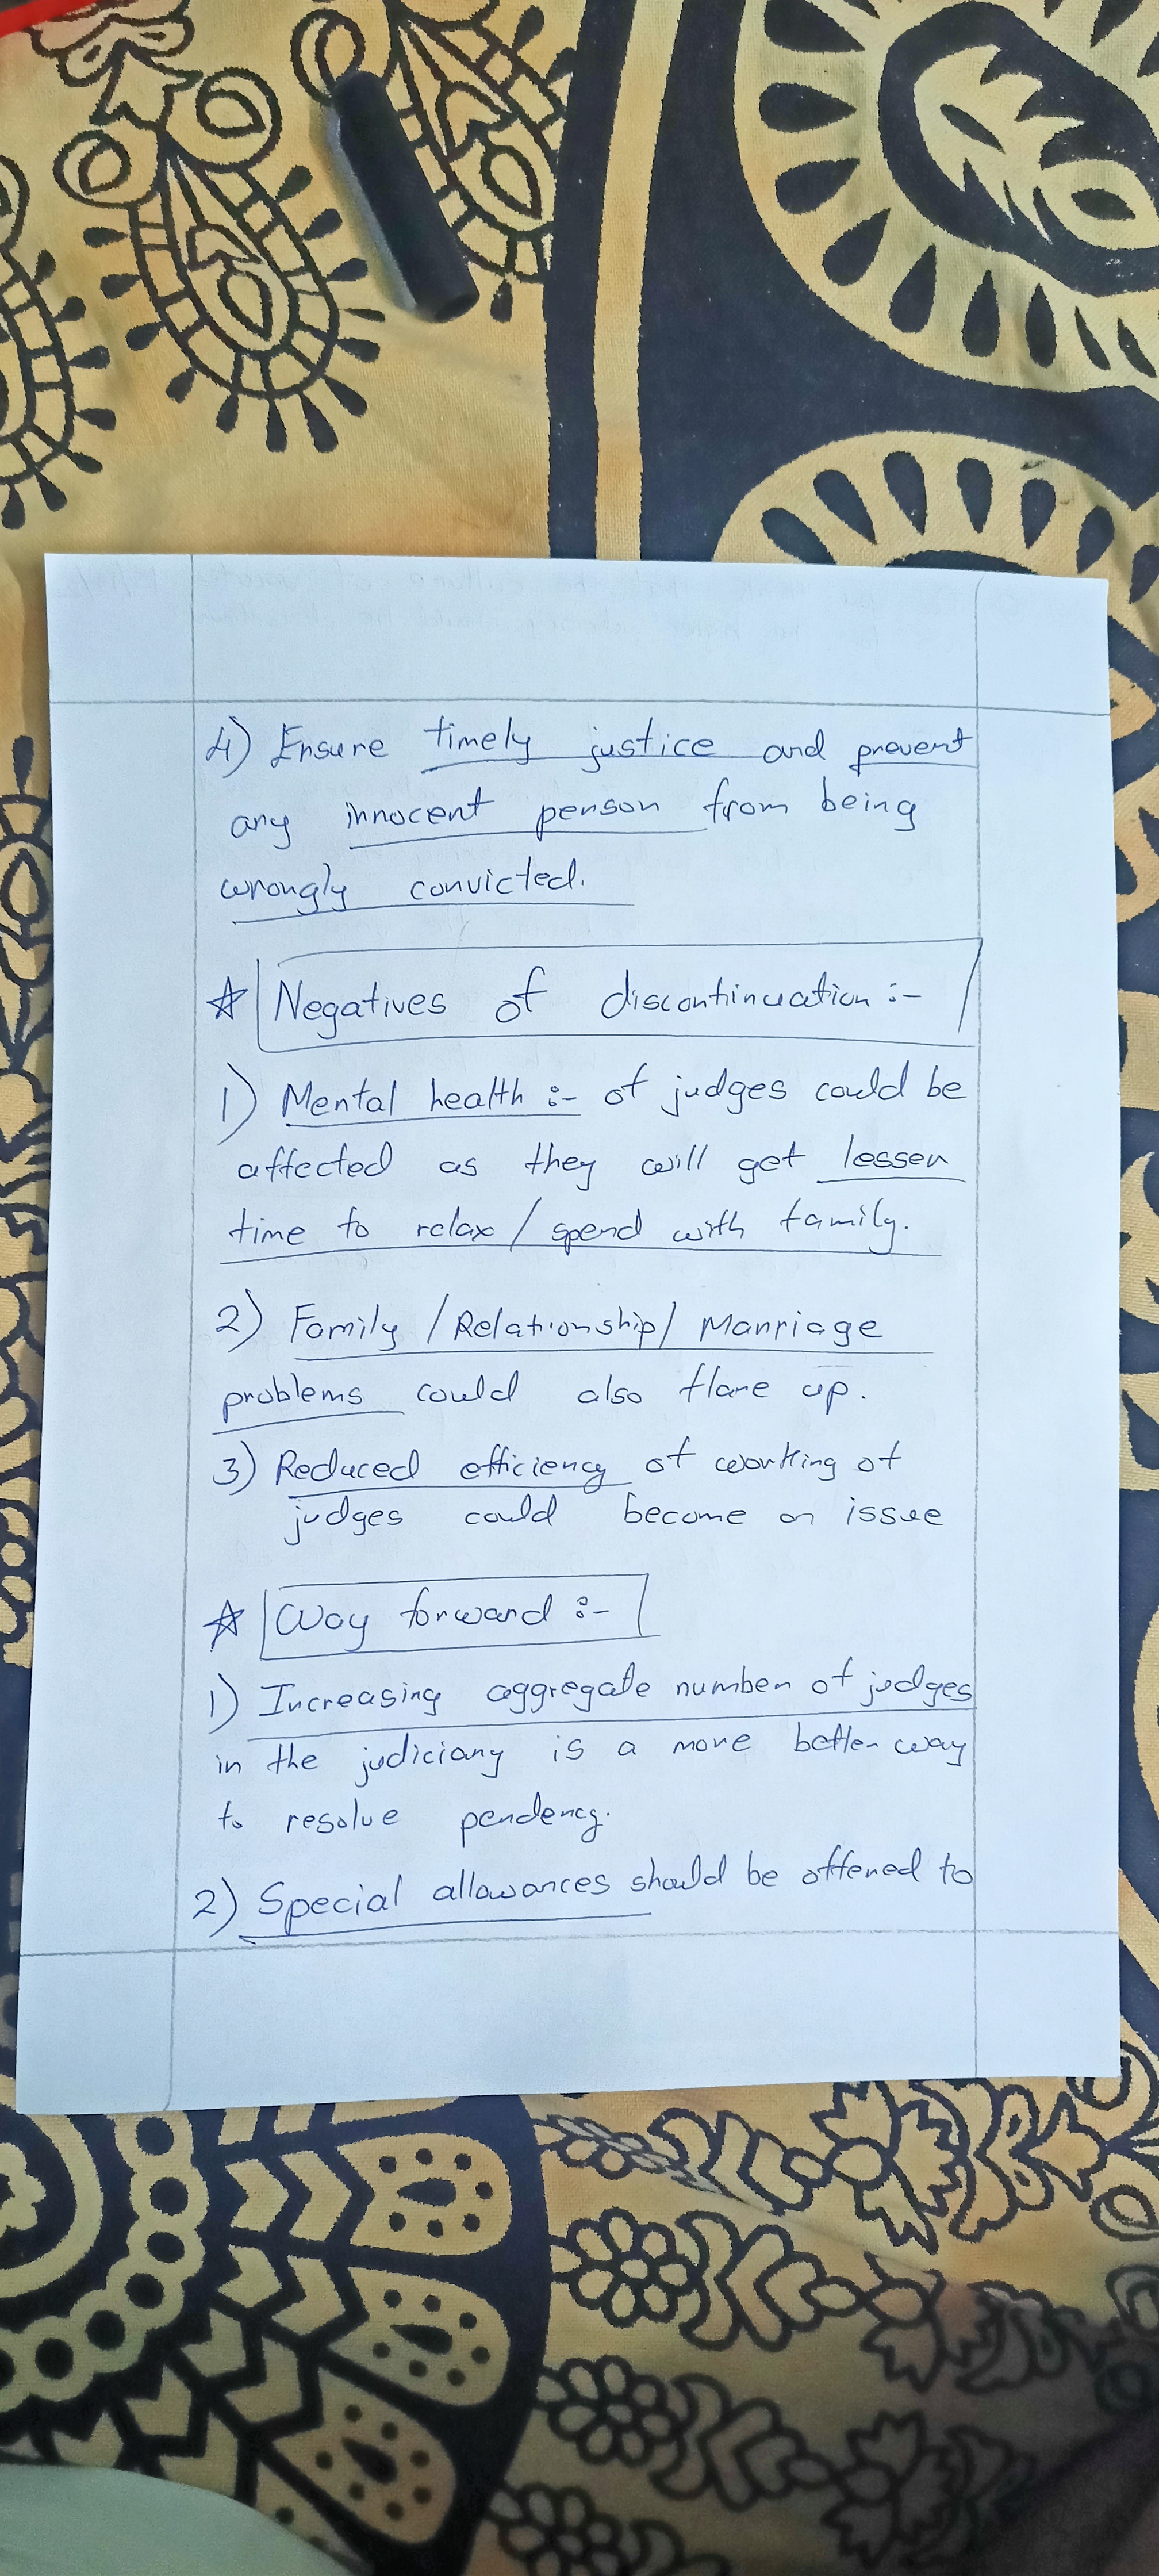 4) Ensure timely justice and prevent
any innocent person from being
wrongly convicted.
☆ Negatives of discontinuation :-
1) Mental health :- of judges could be
affected as they will get lesser
time to relax / spend with family.
2) Family / Relationship / Marriage
problems could also flare up.
3) Reduced efficiency of working of
judges could become an issue
☆ Way forward :-
1) Increasing aggregate number of judges
in the judiciary is a more better way
to resolve pendency.
2) Special allowances should be offered to